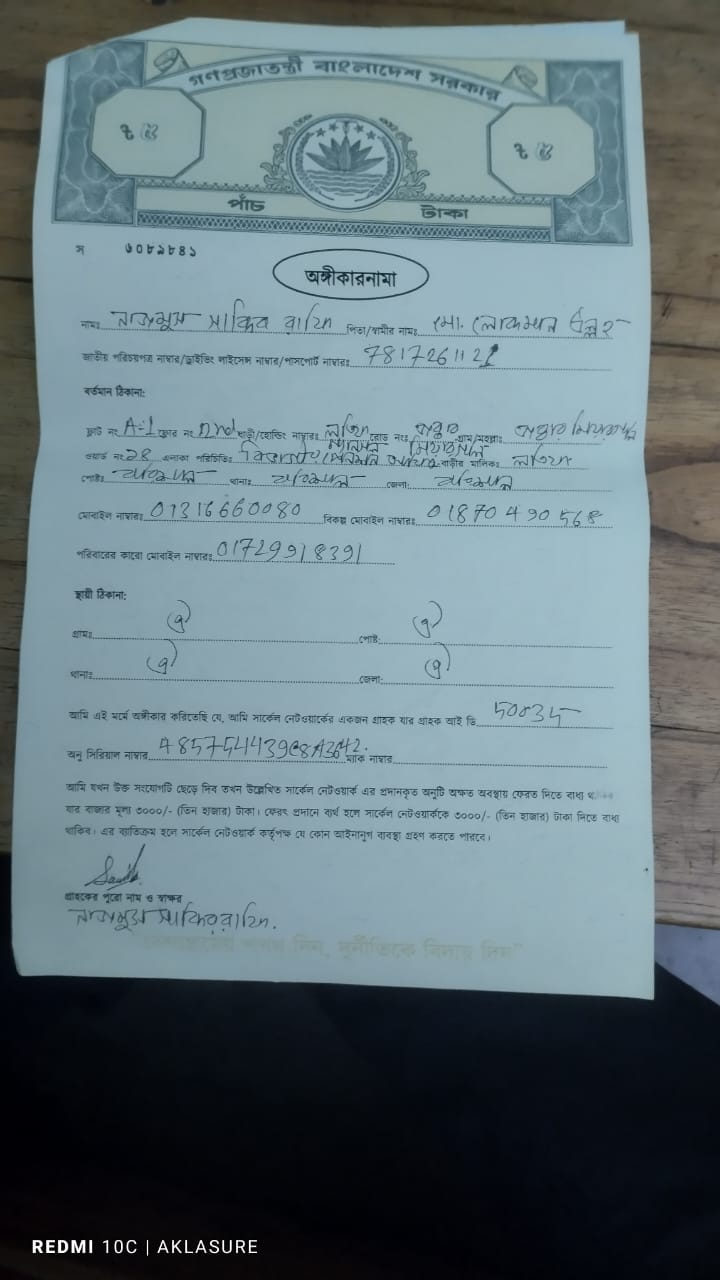 গণপ্রজাতন্ত্রী বাংলাদেশ সরকার
৳ ৫ ৳ ৫
পাঁচ টাকা
স ৬০৮৯৮৪১
অঙ্গীকারনামা
নামঃ নাজমুস সাকিব রাফি পিতা/স্বামীর নামঃ মো. লোকমান
জাতীয় পরিচয়পত্র নাম্বার/ড্রাইভিং লাইসেন্স নাম্বার/পাসপোর্ট নাম্বারঃ 7817261121
বর্তমান ঠিকানা:
ফ্লাট নং A-1 ফ্লোর নং 2nd বাড়ী/হোল্ডিং নাম্বারঃ লতিফ রোড নংঃ গ্রাম/মহল্লাঃ
ওয়ার্ড নং 28 এলাকা পরিচিতিঃ বাড়ীর মালিকঃ লতিফ
পোষ্টঃ বরিশাল থানাঃ বরিশাল জেলাঃ বরিশাল
মোবাইল নাম্বারঃ 01316660080 বিকল্প মোবাইল নাম্বারঃ 01870490568
পরিবারের কারো মোবাইল নাম্বারঃ 01729918391
স্থায়ী ঠিকানা:
গ্রামঃ ঐ পোষ্ট: ঐ
থানাঃ ঐ জেলা: ঐ
আমি এই মর্মে অঙ্গীকার করিতেছি যে, আমি সার্কেল নেটওয়ার্কের একজন গ্রাহক যার গ্রাহক আই ডি 50035
অনু সিরিয়াল নাম্বার 485754439C8A3642. ম্যাক নাম্বার
আমি যখন উক্ত সংযোগটি ছেড়ে দিব তখন উল্লেখিত সার্কেল নেটওয়ার্ক এর প্রদানকৃত অনুটি অক্ষত অবস্থায় ফেরত দিতে বাধ্য
যার বাজার মূল্য ৩০০০/- (তিন হাজার) টাকা। ফেরৎ প্রদানে ব্যর্থ হলে সার্কেল নেটওয়ার্ককে ৩০০০/- (তিন হাজার) টাকা দিতে বাধ্য
থাকিব। এর ব্যতিক্রম হলে সার্কেল নেটওয়ার্ক কর্তৃপক্ষ যে কোন আইনানুগ ব্যবস্থা গ্রহণ করতে পারবে।
গ্রাহকের পুরো নাম ও স্বাক্ষর
নাজমুস সাকিব রাফি.
শপথ নিন, দুর্নীতিকে বিদায় দিন"
REDMI 10C | AKLASURE